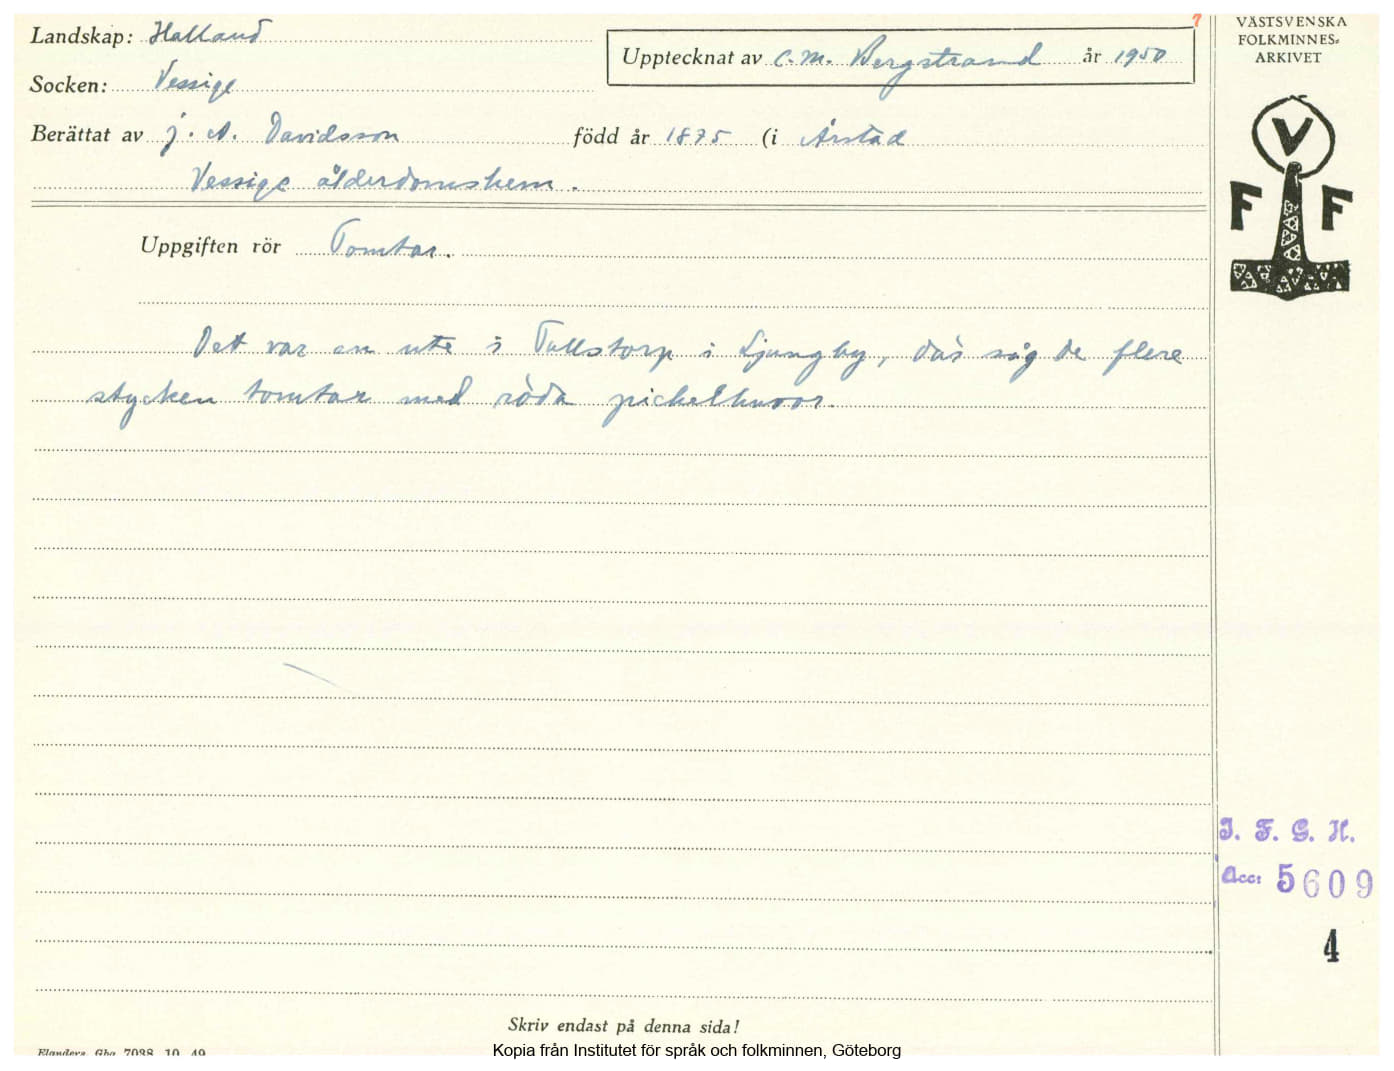 Landskap: Halland
Upptecknat av C.M. Bergstrand år 1950
Socken: Vessige
Berättat av J. A. Davidsson född år 1875 (i Årstad
Vessige ålderdomshem.
Uppgiften rör Tomtar.
Det var en ute i Tullstorp i Ljungby, där såg de flere
stycken tomtar med röda pickelhuvor.
VÄSTSVENSKA
FOLKMINNES-
ARKIVET
V
F F
I. F. G. H.
Acc: 5609
4
Skriv endast på denna sida!
Elanders Gbg 7038 10 49
Kopia från Institutet för språk och folkminnen, Göteborg